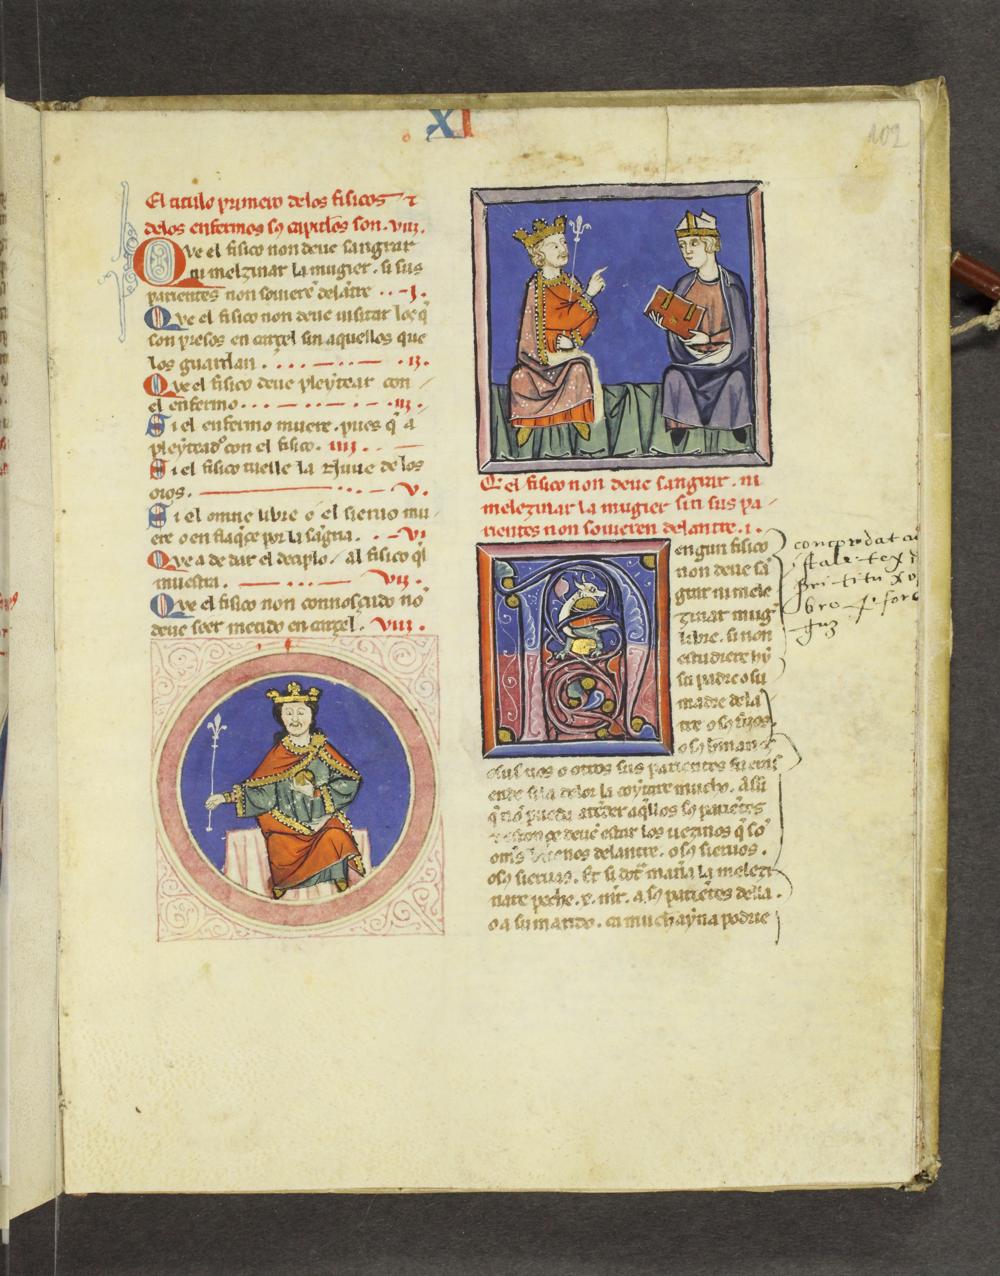 XI
102
El titulo primero delos fisicos ⁊
delos enfermos sõ capitl̃os son .viii.
Que el fisico non deue sangrar
ni melezinar la mugier . si sus
parientes non souierẽ delãtre .. – .i.
Que el fisico non deue uisitar los q̃
son presos en carçel sin aquellos que
los guardan . . . . – . – . – .ii.
Que el fisico deue pleytear con
el enfermo . . . – . – . . – .iii.
Si el enfermo muere . pues q̃ a
pleytead̃ con el fisico . iiii . . –
Si el fisico tuelle la nuue de los
oios . – . . . – . – v .
Si el omne libre o el sieruo mu
ere o enflaq̃ce por la sãgria . . – vi
Que a de dar el deciplo / al fisico ql̃
muestra . – . . . – vii .
Que el fisico non connosçudo nõ
deue seer metido en carçel . viii .
Q̃ el fisico non deue sangrar . ni
melezinar la mugier sin sus pa-
rientes non souieren delantre .i.
Nengun fisico
non deue sã
grar ni mele
zinar mug̃
libre . si non
estudiere hỹ
su padre o su
madre de la
tre o sõ fiios .
o sõ hr̃man
o sus tios o otros sus parientes fueras
ende si la dolor la coytare mucho . Assi
q̃ nõ pueda atẽder aq̃llos sõ pariẽtes
⁊ estonçe deuẽ estar los uezinos q̃ sõ
om̃s buenos delantre . o sõ sieruos .
o sõ sieruas . Et si dotrã maña la melezi
nare peche . x . mr̃ . a sõ pariẽtes della .
o a su marido . ca mucho ayna podrie
concordat ad